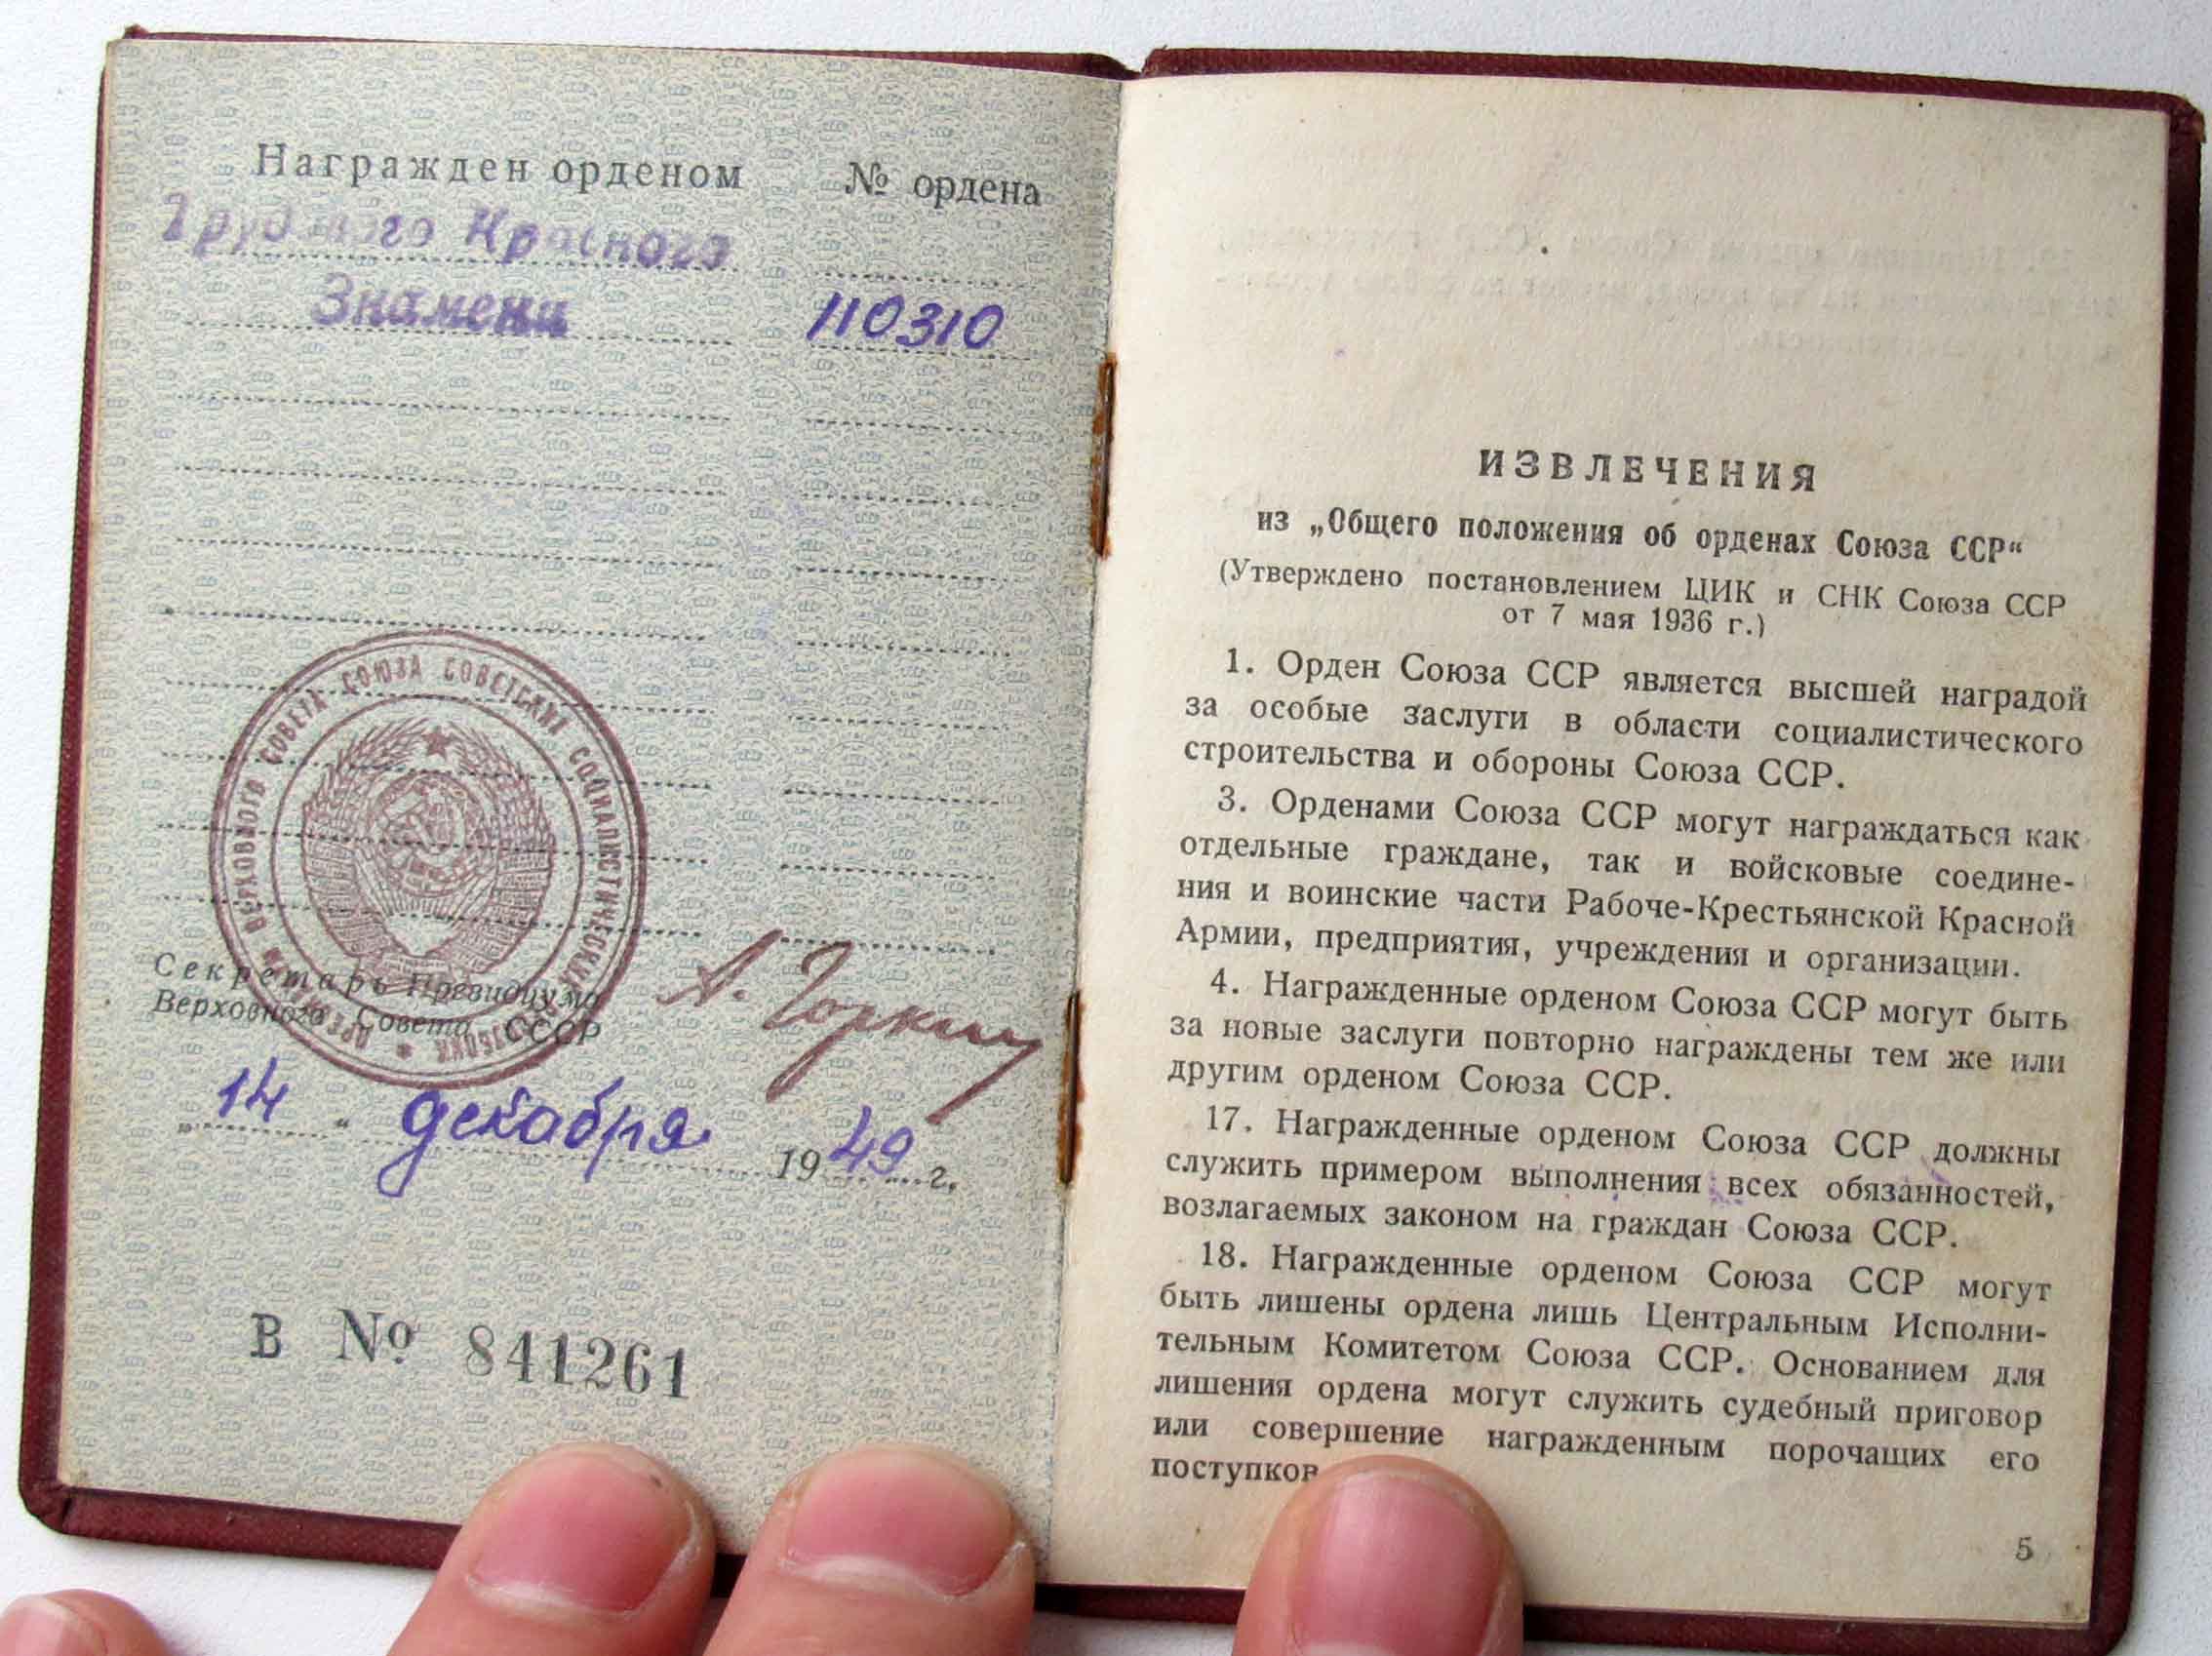 Награжден орденом № ордена
Трудового Красного
Знамени 110310
ПРЕЗИДИУМ ВЕРХОВНОГО СОВЕТА СОЮЗА СОВЕТСКИХ СОЦИАЛИСТИЧЕСКИХ РЕСПУБЛИК *
Секретарь Президиума
Верховного Совета СССР
А. Горкин
„14“ декабря 1949 г.
В № 841261
ИЗВЛЕЧЕНИЯ
из „Общего положения об орденах Союза ССР“
(Утверждено постановлением ЦИК и СНК Союза ССР
от 7 мая 1936 г.)
1. Орден Союза ССР является высшей наградой
за особые заслуги в области социалистического
строительства и обороны Союза ССР.
3. Орденами Союза ССР могут награждаться как
отдельные граждане, так и войсковые соедине-
ния и воинские части Рабоче-Крестьянской Красной
Армии, предприятия, учреждения и организации.
4. Награжденные орденом Союза ССР могут быть
за новые заслуги повторно награждены тем же или
другим орденом Союза ССР.
17. Награжденные орденом Союза ССР должны
служить примером выполнения всех обязанностей,
возлагаемых законом на граждан Союза ССР.
18. Награжденные орденом Союза ССР могут
быть лишены ордена лишь Центральным Исполни-
тельным Комитетом Союза ССР. Основанием для
лишения ордена могут служить судебный приговор
или совершение награжденным порочащих его
поступков
5